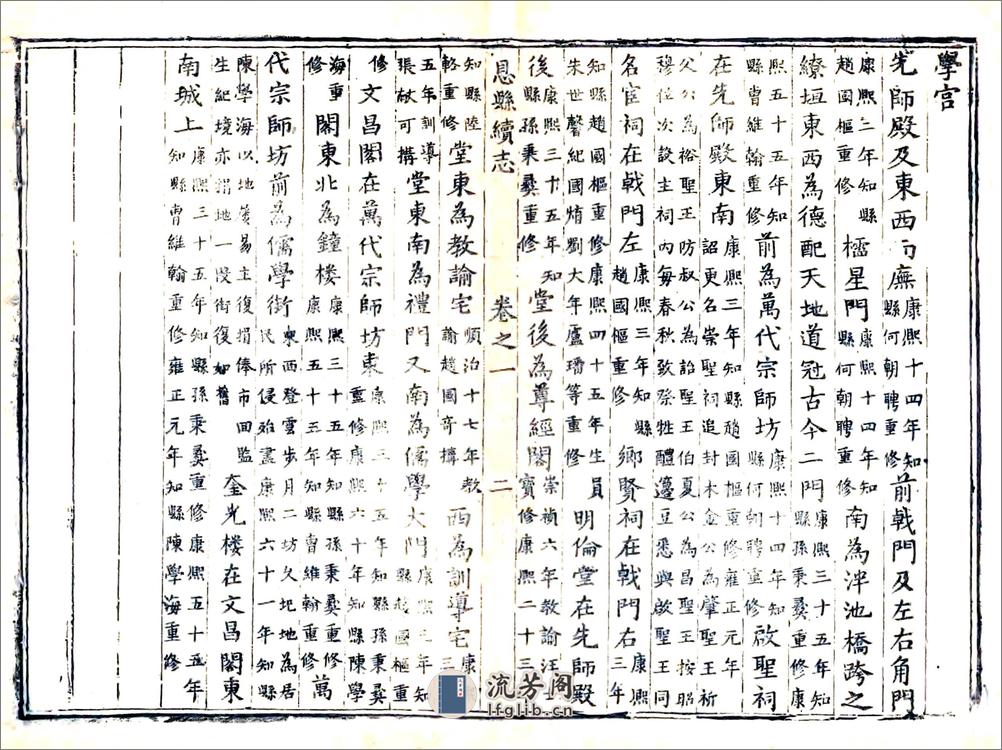 學宮
先師殿及東西兩廡康熙十四年知縣何朝聘重修前戟門及左右角門
康熙三年知縣趙國樞重修櫺星門康熙十四年知縣何朝聘重修南為泮池橋跨之
繚垣東西為德配天地道冠古今二門康熙三十五年知縣孫秉彝重修康
熙五十五年知縣曹維翰重修前為萬代宗師坊康熙十四年知縣何朝聘重修啟聖祠
在先師殿東南康熙三年知縣趙國樞重修雍正元年詔更名崇聖祠追封木金公為肇聖王祈
父公為裕聖王防叔公為詒聖王伯夏公為昌聖王按昭穆位次設主祠內每春秋致祭牲醴籩豆悉與啟聖王同
名宦祠在戟門左康熙三年知縣趙國樞重修鄉賢祠在戟門右康熙三年
知縣趙國樞重修康熙四十五年生員朱世馨紀國堉劉大年盧璠等重修明倫堂在先師殿
後康熙三十五年知縣孫秉彝重修堂後為尊經閣崇禎六年教諭汪士寶修康熙二十三年
恩縣續志 卷之一 二
知縣陸輅重修堂東為教諭宅順治十七年教諭趙國奇搆西為訓導宅康熙三十
五年訓導張猷可搆堂東南為禮門又南為儒學大門康熙三年知縣趙國樞重
修文昌閣在萬代宗師坊東康熙三十五年知縣孫秉彝重修康熙六十年知縣陳學
海重修閣東北為鐘樓康熙三十五年知縣孫秉彝重修康熙五十三年知縣曹維翰重修萬
代宗師坊前為儒學街東西登雲步月二坊久圯地為居民所侵殆盡康熙六十一年知縣
陳學海以地變易主復捐俸市回監生紀境亦捐地一段街復如舊奎光樓在文昌閣東
南城上康熙三十五年知縣孫秉彝重修康熙五十五年知縣曹維翰重修雍正元年知縣陳學海重修
流芳阁
lfglib.cn